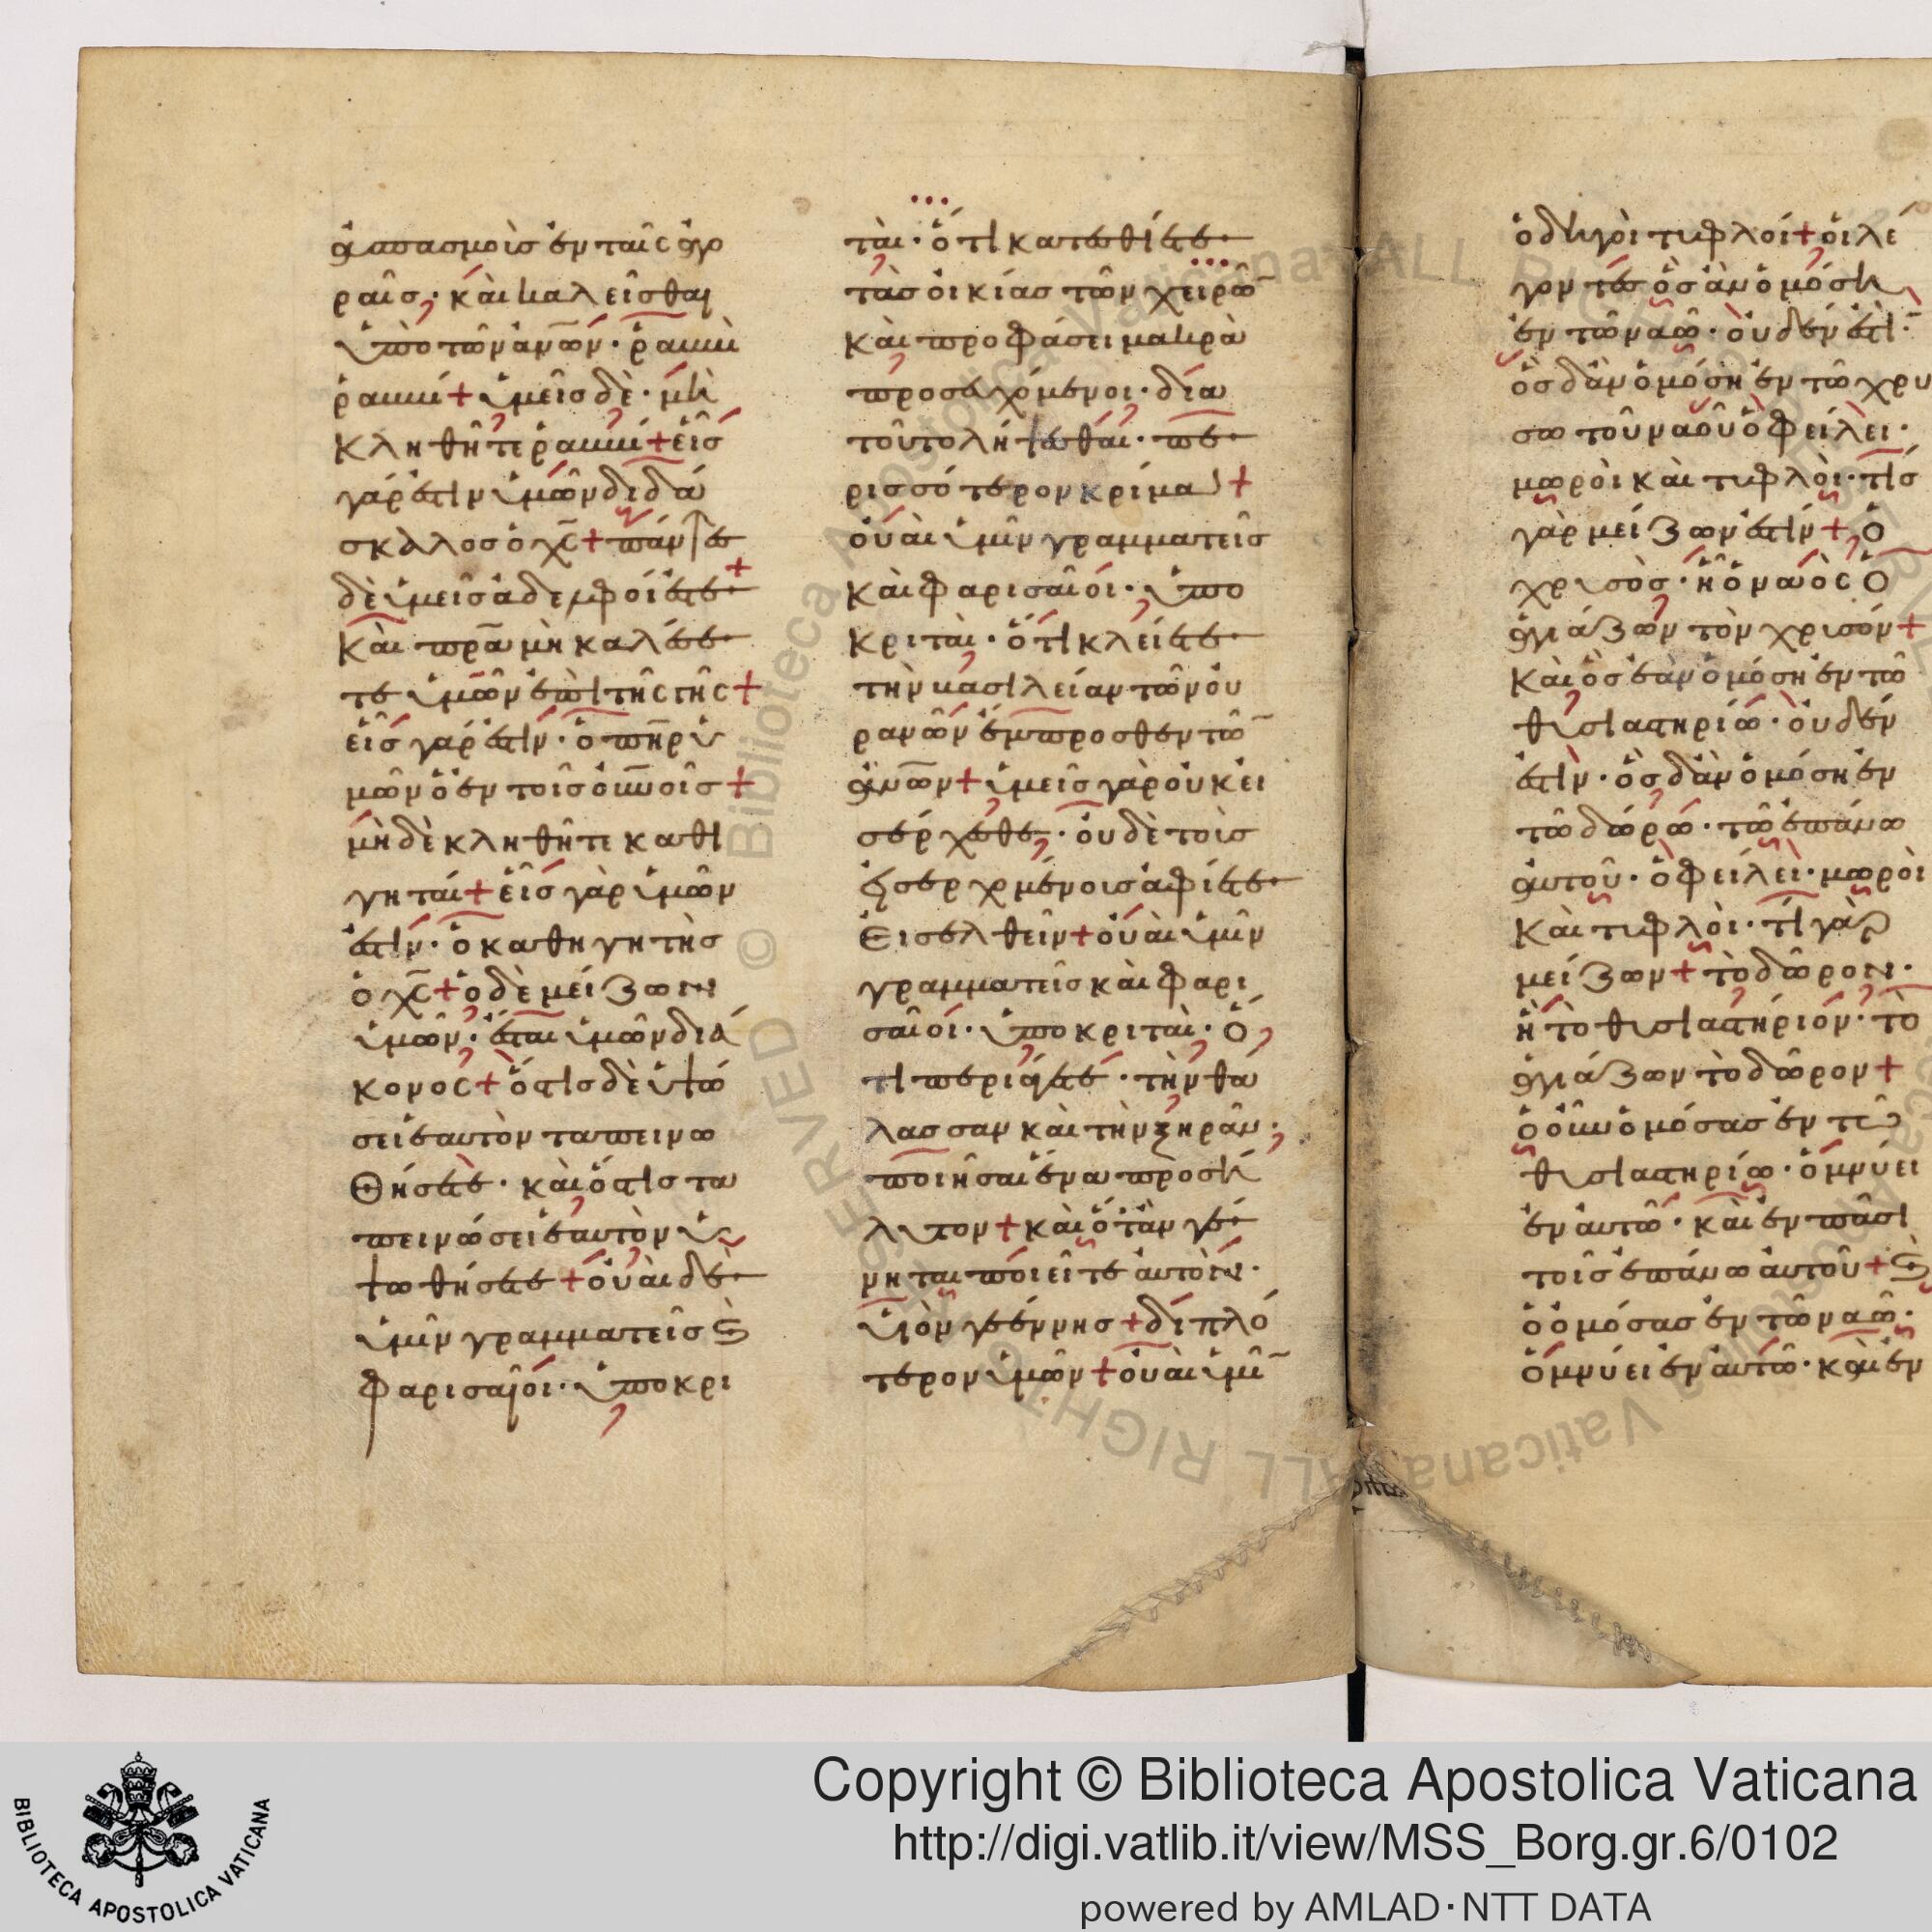 ἀσπασμοὺς ἐν ταῖς ἀγο
ραῖς· καὶ καλεῖσθαι
ὑπὸ τῶν ἀνων· ῥαββὶ
ῥαββί + ὑμεῖς δὲ· μὴ
κληθῆτε ῥαββί + εἷς
γάρ ἐστιν ὑμῶν διδά
σκαλος ὁ χς + πάντες
δὲ ὑμεῖς ἀδελφοί ἐστε +
καὶ πρα μὴ καλέσε
τε ὑμῶν ἐπὶ τῆς γῆς +
εἷς γάρ ἐστιν· ὁ πηρ ὑ
μῶν ὁ ἐν τοῖς οὐνοῖς +
μὴ δὲ κληθῆτε καθη
γηταί + εἷς γὰρ ὑμῶν
ἐστιν· ὁ καθηγητὴς
ὁ χς + ὁ δὲ μείζων
ὑμῶν· ἔσται ὑμῶν διά
κονος + ὅστις δὲ ὑψώ
σει ἑαυτὸν ταπεινω
θήσεται· καὶ ὅστις τα
πεινώσει ἑαυτὸν ὑ
ψωθήσεται + οὐαὶ δὲ
ὑμῖν γραμματεῖς ϗ
φαρισαῖοι· ὑποκρι
ταὶ· ὅτι κατεσθίετε
τὰς οἰκίας τῶν χειρῶ
καὶ προφάσει μακρὰ
προσευχόμενοι· δία
τοῦτο λήψεσθαι· πε
ρισσότερον κρίμα +
οὐαὶ ὑμῖν γραμματεῖς
καὶ φαρισαῖοι· ὑπο
κριταὶ· ὅτι κλείετε
τὴν βασιλείαν τῶν οὐ
ρανῶν ἔμπροσθεν τῶ
ἀνων + ὑμεῖς γὰρ οὐκ εἰ
σέρχεσθε· οὐδὲ τοὺς
εἰσερχομένοις ἀφίετε
εἰσελθεῖν + οὐαὶ ὑμῖν
γραμματεῖς καὶ φαρι
σαῖοι· ὑποκριταὶ· ὅ
τι περιάγετε· τὴν θά
λασσαν καὶ τὴν ξηρὰν·
ποιῆσαι ἕνα προσή
λυτον + καὶ ὅταν γέ
νηται ποιεῖτε αὐτὸν·
υἱὸν γεέννης + διπλό
τερον ὑμῶν + οὐαὶ ὑμῖ
ὁδηγοὶ τυφλοί + οἱ λέ
γοντες ὃς ἂν ὀμόσῃ
ἐν τῶ ναῶ· οὐδέν ἐστι·
ὃς δ' ἂν ὀμόσῃ ἐν τῶ χρυ
σῶ τοῦ ναοῦ ὀφείλει·
μωροὶ καὶ τυφλοὶ· τίς
γὰρ μείζων ἐστίν + ὁ
χρυσὸς· ἢ ὁ ναὸς ὁ
ἁγιάζων τὸν χρυσόν +
καὶ ὃς ἐὰν ὀμόσῃ ἐν τῶ
θυσιαστηρίω· οὐδέν
ἐστιν· ὃς δ' ἂν ὀμόσῃ ἐν
τῶ δώρω· τῶ ἐπάνω
αὐτοῦ· ὀφείλει· μωροὶ
καὶ τυφλοὶ· τί γὰρ
μείζων + τὸ δῶρον·
ἢ τὸ θυσιαστήριον· τὸ
ἁγιάζων τὸ δῶρον +
ὁ οὖν ὀμόσας ἐν τῶ
θυσιαστηρίω· ὀμνύει
ἐν αὐτῶ· καὶ ἐν πᾶσι
τοῖς ἐπάνω αὐτοῦ + ϗ
ὁ ὀμόσας ἐν τῶ ναῶ·
ὀμνύει ἐν αὐτῶ· καὶ ἐν
Copyright © Biblioteca Apostolica Vaticana
http://digi.vatlib.it/view/MSS_Borg.gr.6/0102
powered by AMLAD·NTT DATA
BIBLIOTECA APOSTOLICA VATICANA